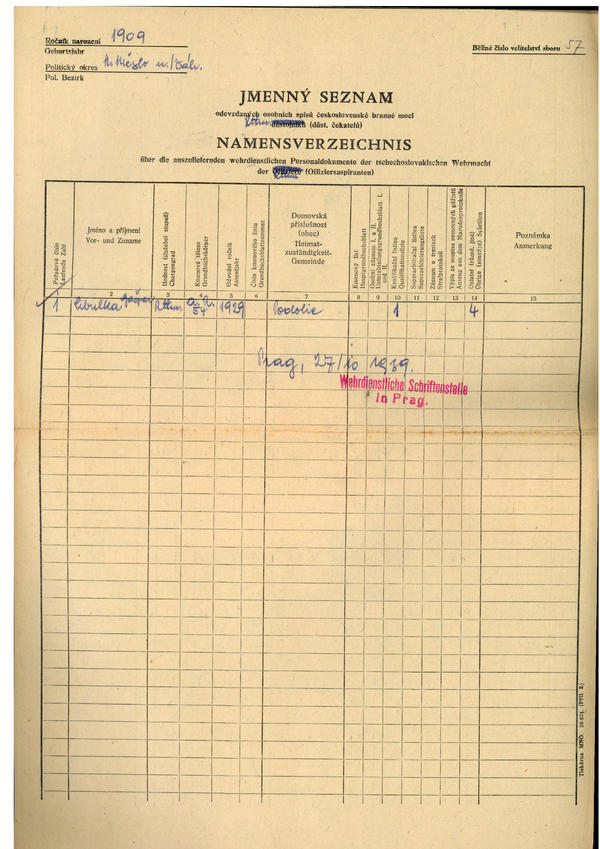 Ročník narození 1909
Geburtsjahr
Běžné číslo velitelství sboru 57
Politický okres N. Město n./Váh.
Pol. Bezirk
JMENNÝ SEZNAM
odevzdaných osobních spisů československé branné moci
důstojníků (důst. čekatelů)
NAMENSVERZEICHNIS
über die auszuliefernden wehrdienstlichen Personaldokumente der tschechoslovakischen Wehrmacht
der Offiziere (Offiziersaspiranten)
Pořadové číslo Laufende Zahl
Jméno a příjmení Vor- und Zuname
Hodnost (služební stupeň) Chargengrad
Kmenové těleso Grundbuchskörper
Odvodní ročník Assentjahr
Číslo kmenového listu Grundbuchsblattnummer
Domovská příslušnost (obec) Heimat-zuständigkeit-Gemeinde
Kmenový list Hauptgrundbuchblatt
Osobní záznam I. a II. Unterabteilungsgrundbuchsblatt I. und II.
Kvalifikační listina Qualifikationsliste
Superarbitrační listina Superarbitrierungsliste
Záznam o trestech Strafprotokoll
Výpis ze soupisu nemocných gážistů Auszug aus dem Marodenprotokolle
Ostatní (různé, jiné) Übrige (sonstige) Schriften
Poznámka Anmerkung
2 3 4 5 6 7 8 9 10 11 12 13 14 15
1 Cibulka Rttm. 1929 Podolie 1 4
Prag, 27/10 1939.
Wehrdienstliche Schriftenstelle
in Prag.
Tiskárna MNO.